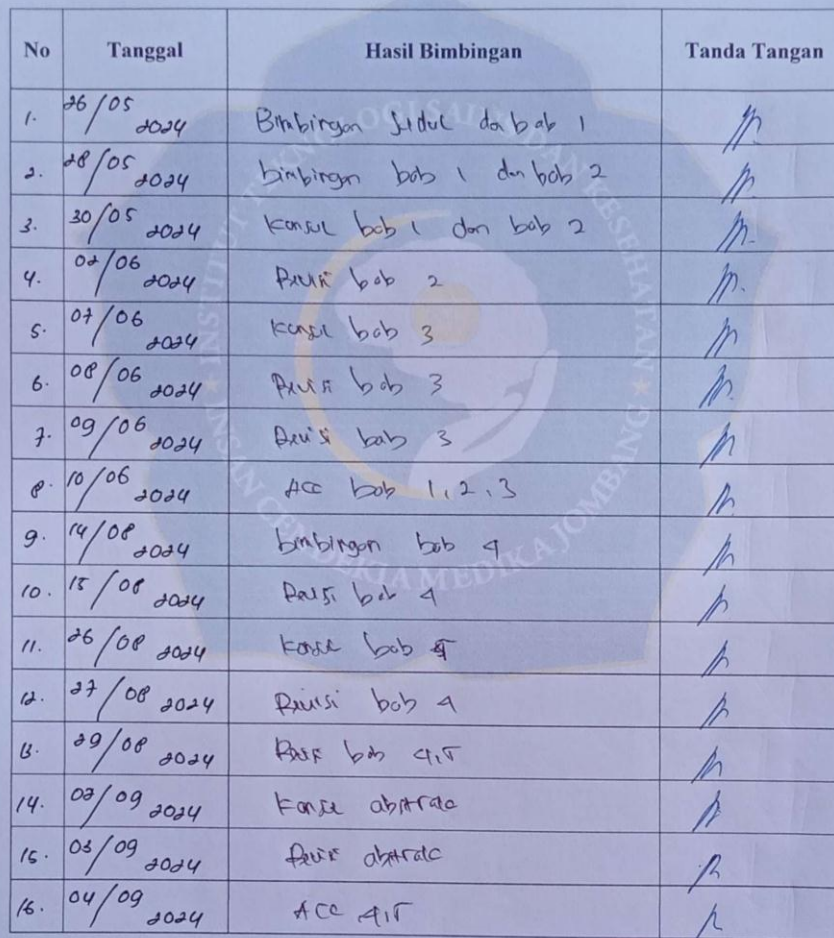 No Tanggal Hasil Bimbingan Tanda Tangan
1. 26/05 2024 Bimbingan Judul dan bab 1
2. 28/05 2024 bimbingan bab 1 dan bab 2
3. 30/05 2024 Konsul bab 1 dan bab 2
4. 02/06 2024 Revisi bab 2
5. 07/06 2024 Konsul bab 3
6. 08/06 2024 Revisi bab 3
7. 09/06 2024 Revisi bab 3
8. 10/06 2024 ACC bab 1, 2, 3
9. 14/08 2024 bimbingan bab 4
10. 15/08 2024 Revisi bab 4
11. 26/08 2024 Konsul bab 5
12. 27/08 2024 Revisi bab 4
13. 29/08 2024 Revisi bab 4,5
14. 02/09 2024 Konsul abstrak
15. 03/09 2024 Revisi abstrak
16. 04/09 2024 ACC 4,5
INSTITUT TEKNOLOGI SAINS DAN KESEHATAN
INSAN CENDEKIA MEDIKA JOMBANG